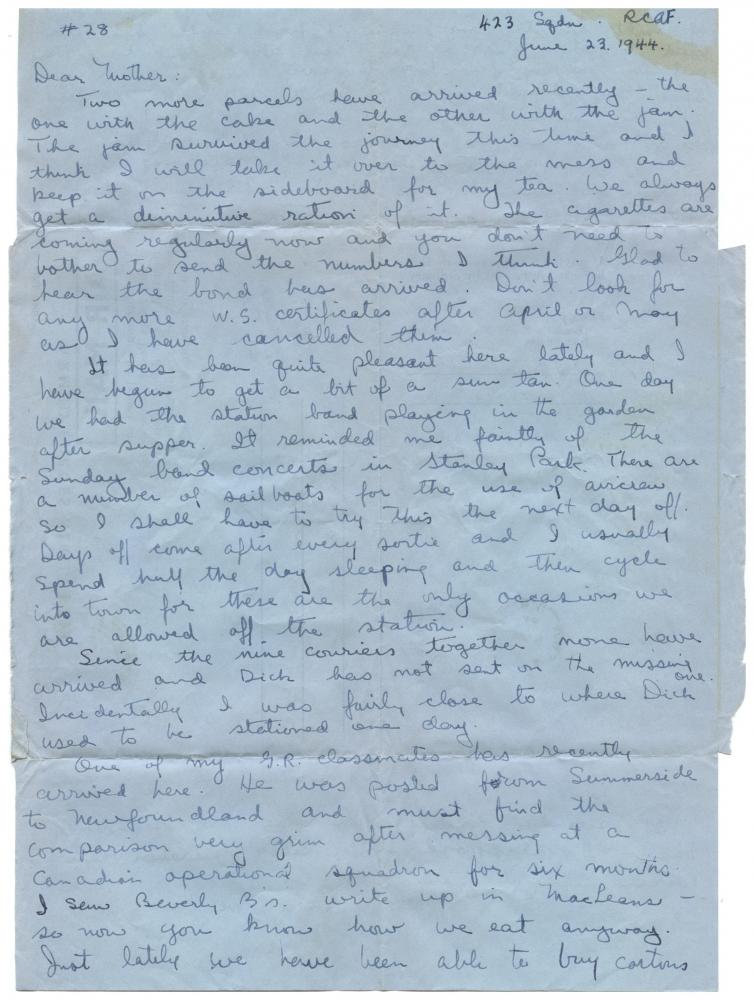 # 28
423 Sqdn. RCAF.
June 23. 1944.
Dear Mother:
Two more parcels have arrived recently – the
one with the cake and the other with the jam.
The jam survived the journey this time and I
think I will take it over to the mess and
keep it on the sideboard for my tea. We always
get a diminutive ration of it. The cigarettes are
coming regularly now and you don't need to
bother to send the numbers I think. Glad to
hear the bond has arrived. Don't look for
any more W.S. certificates after April or May
as I have cancelled them.
It has been quite pleasant here lately and I
have begun to get a bit of a sun tan. One day
we had the station band playing in the garden
after supper. It reminded me faintly of the
Sunday band concerts in Stanley Park. There are
a number of sailboats for the use of aircrew
so I shall have to try this the next day off.
Days off come after every sortie and I usually
spend half the day sleeping and then cycle
into town for these are the only occasions we
are allowed off the station.
Since the nine couriers together none have
arrived and Dick has not sent on the missing
one.
Incidentally I was fairly close to where Dick
used to be stationed one day.
One of my G.R. classmates has recently
arrived here. He was posted from Summerside
to Newfoundland and must find the
comparison very grim after messing at a
Canadian operational squadron for six months.
I saw Beverly B's. write up in MacLeans –
so now you know how we eat anyway.
Just lately we have been able to buy cartons